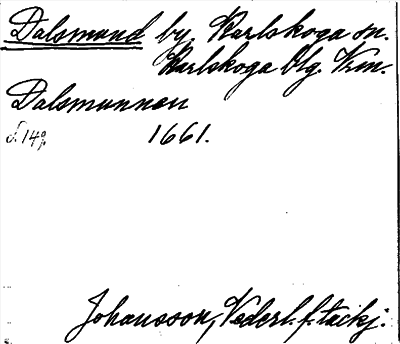 Dalsmund by, Karlskoga sn.
Karlskoga blg. Vrm.
Dalsmunnen
s. 149. 1661.
Johansson, Vederl. f. täckj.